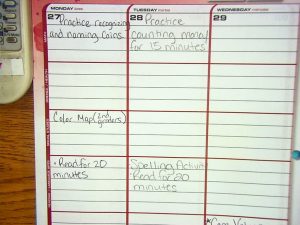 MONDAY
27
Practice recognizing
and naming Coins.
Color Map (2nd
graders)
• Read for 20
minutes
TUESDAY
28 Practice
counting money
for 15 minutes
Spelling Activity
• Read for 20
minutes
WEDNESDAY
29